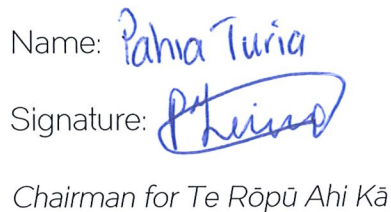 Name: Pahia Turia
Signature:
Chairman for Te Rōpū Ahi Kā